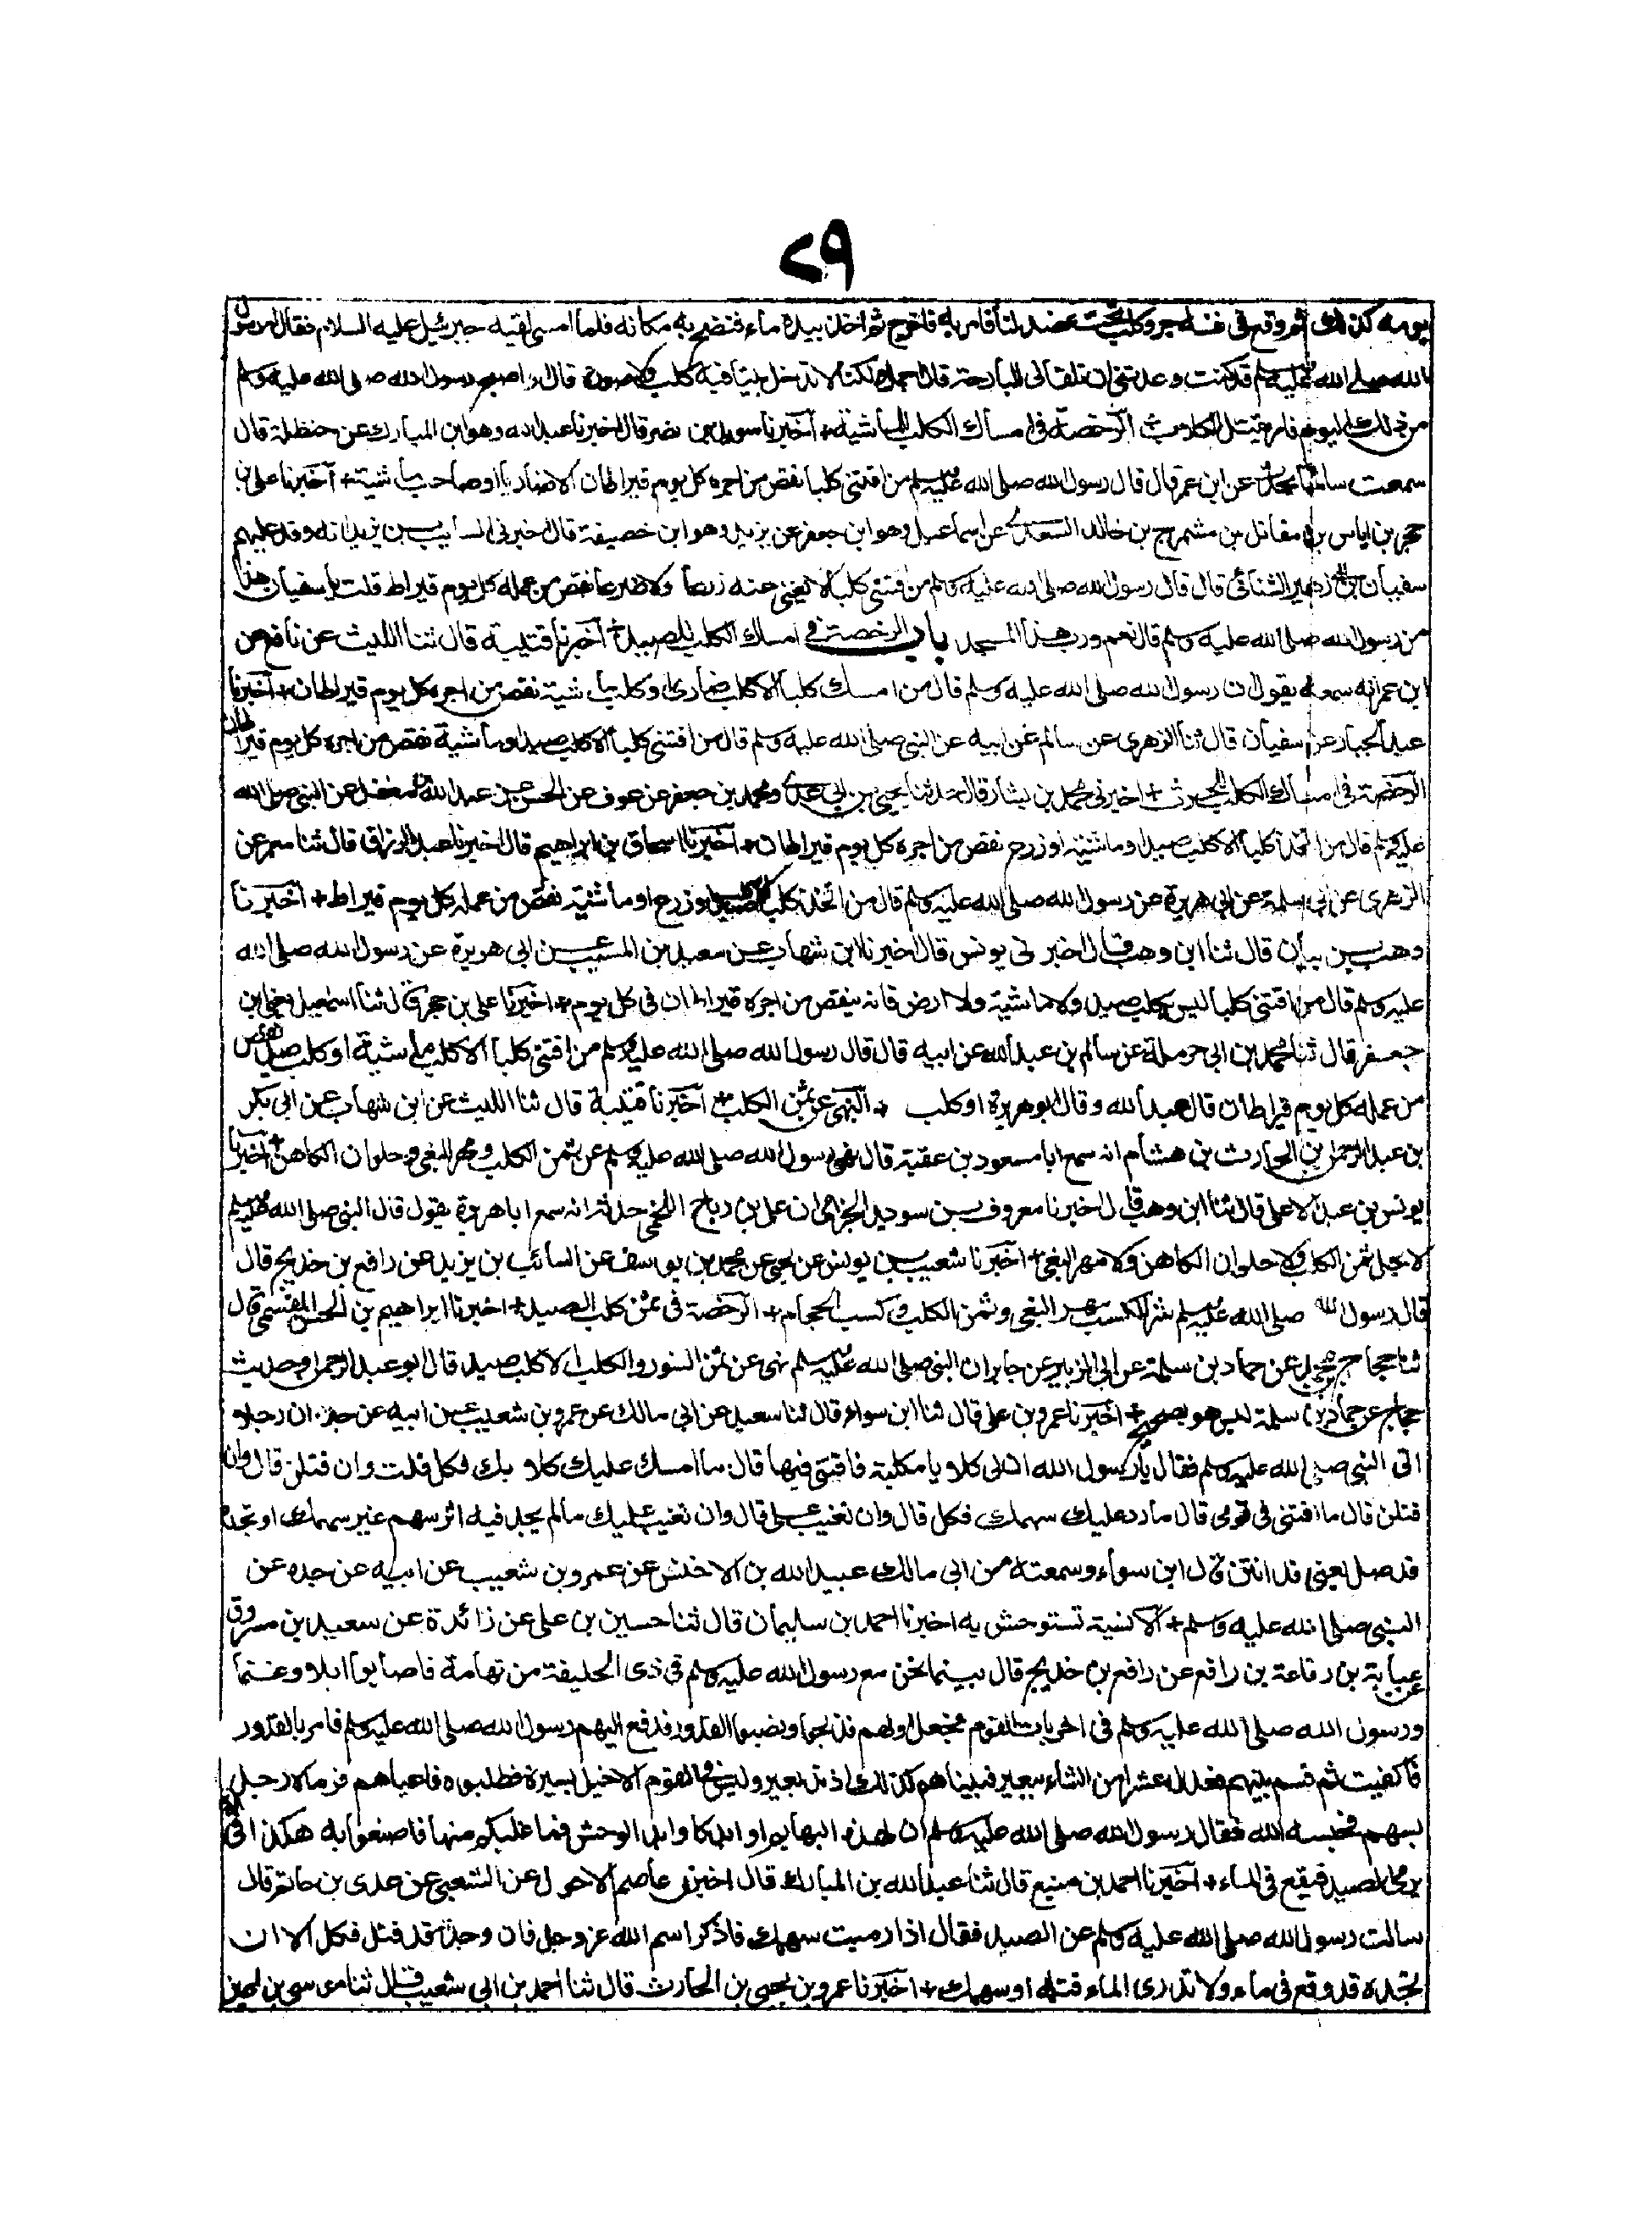 ٢٩
يومه كذلك ثم وقع في نفسه جرو كلب تحت نضد لنا فامر به فاخرج ثم اخذ بيده ماء فنضح به مكانه فلما امسى لقيه جبرئيل عليه السلام فقال له رسول
الله صلى الله عليه وسلم قد كنت وعدتني ان تلقاني البارحة قال اجل ولكنا لا ندخل بيتا فيه كلب ولا صورة قال فاصبح رسول الله صلى الله عليه وسلم
من ذلك اليوم فامر بقتل الكلاب + الرخصة في امساك الكلب للماشية + اخبرنا سويد بن نصر قال اخبرنا عبد الله وهو ابن المبارك عن حنظلة قال
سمعت سالما يحدث عن ابن عمر قال قال رسول الله صلى الله عليه وسلم من اقتنى كلبا نقص من اجره كل يوم قيراطان الا ضاريا او صاحب ماشية + اخبرنا علي بن
حجر بن اياس بن مقاتل بن مشمرج بن خالد السعدي عن اسماعيل وهو ابن جعفر عن يزيد وهو ابن خصيفة قال اخبرني السائب بن يزيد انه وفد عليهم
سفيان بن ابي زهير الشنائي قال قال رسول الله صلى الله عليه وسلم من اقتنى كلبا لا يغني عنه زرعا ولا ضرعا نقص من عمله كل يوم قيراط قلت يا سفيان هذا
من رسول الله صلى الله عليه وسلم قال نعم ورب هذا المسجد باب الرخصة في امساك الكلب للصيد اخبرنا قتيبة قال ثنا الليث عن نافع عن
ابن عمر انه سمعه يقول ان رسول الله صلى الله عليه وسلم قال من امسك كلبا الا كلب ضاري او كلب ماشية نقص من اجره كل يوم قيراطان + اخبرنا
عبد الجبار عن سفيان قال ثنا الزهري عن سالم عن ابيه عن النبي صلى الله عليه وسلم قال من اقتنى كلبا الا كلب صيد او ماشية نقص من اجره كل يوم قيراطان
الرخصة في امساك الكلب للحرث + اخبرني محمد بن بشار قال حدثنا يحيى بن ابي عدي ومحمد بن جعفر عن عوف عن الحسن عن عبد الله بن مغفل عن النبي صلى الله
عليه وسلم قال من اتخذ كلبا الا كلب صيد او ماشية او زرع نقص من اجره كل يوم قيراطان + اخبرنا اسحاق بن ابراهيم قال اخبرنا عبد الرزاق قال ثنا معمر عن
الزهري عن ابي سلمة عن ابي هريرة عن رسول الله صلى الله عليه وسلم قال من اتخذ كلبا الا كلب صيد او زرع او ماشية نقص من عمله كل يوم قيراط + اخبرنا
وهب بن بيان قال ثنا ابن وهب قال اخبرني يونس قال اخبرنا ابن شهاب عن سعيد بن المسيب عن ابي هريرة عن رسول الله صلى الله
عليه وسلم قال من اقتنى كلبا ليس بكلب صيد ولا ماشية ولا ارض فانه ينقص من اجره قيراطان في كل يوم + اخبرنا علي بن حجر قال ثنا اسمعيل يعني ابن
جعفر قال ثنا محمد بن ابي حرملة عن سالم بن عبد الله عن ابيه قال قال رسول الله صلى الله عليه وسلم من اقتنى كلبا الا كلب ماشية او كلب صيد نقص
من عمله كل يوم قيراطان قال عبد الله وقال ابو هريرة او كلب + النهي عن ثمن الكلب + اخبرنا قتيبة قال ثنا الليث عن ابن شهاب عن ابي بكر
بن عبد الرحمن بن الحارث بن هشام انه سمع ابا مسعود بن عقبة قال نهى رسول الله صلى الله عليه وسلم عن ثمن الكلب ومهر البغي وحلوان الكاهن + اخبرنا
يونس بن عبد الاعلى قال ثنا ابن وهب قال اخبرنا معروف بن سويد الجزامي ان علي بن رباح اللخمي حدثه انه سمع ابا هريرة يقول قال النبي صلى الله عليه وسلم
لا يحل ثمن الكلب ولا حلوان الكاهن ولا مهر البغي + اخبرنا شعيب بن يونس عن يحيى عن محمد بن يوسف عن السائب بن يزيد عن رافع بن خديج قال
قال رسول الله صلى الله عليه وسلم شر الكسب مهر البغي وثمن الكلب وكسب الحجام + الرخصة في ثمن كلب الصيد + اخبرنا ابراهيم بن الحسن المقسمي قال
ثنا حجاج بن محمد عن حماد بن سلمة عن ابي الزبير عن جابر ان النبي صلى الله عليه وسلم نهى عن ثمن السنور والكلب الا كلب صيد قال ابو عبد الرحمن وحديث
حجاج عن حماد بن سلمة ليس هو بصحيح + اخبرنا عمرو بن علي قال ثنا ابن سواء قال ثنا سعيد عن ابي مالك عن عمرو بن شعيب عن ابيه عن جده ان رجلا
اتى النبي صلى الله عليه وسلم فقال يا رسول الله ان لي كلابا مكلبة فافتني فيها قال ما امسك عليك كلابك فكل قلت وان قتلن قال وان
قتلن قال ما افتني في قوسي قال ما رد عليك سهمك فكل قال وان تغيب علي قال وان تغيب عليك ما لم يجد فيه اثر سهم غير سهمك او تجده
قد صل يعني قد انتن قال ابن سواء وسمعته من ابي مالك عبيد الله بن الاخنس عن عمرو بن شعيب عن ابيه عن جده عن
النبي صلى الله عليه وسلم + الانسية تستوحش به اخبرنا احمد بن سليمان قال ثنا حسين بن علي عن زائدة عن سعيد بن مسروق
عن عباية بن رفاعة بن رافع عن رافع بن خديج قال بينما نحن مع رسول الله عليه وسلم في ذي الحليفة من تهامة فاصابوا ابلا وغنما
ورسول الله صلى الله عليه وسلم في اخريات القوم فجعل اولهم فذبحوا ونصبوا القدور فدفع اليهم رسول الله صلى الله عليه وسلم فامر بالقدور
فاكفيت ثم قسم بينهم فعدل عشرا من الشاء ببعير فبينا هم كذلك اذ ند بعير وليس في القوم الا خيل يسيرة فطلبوه فاعياهم فرماه رجل
بسهم فحبسه الله فقال رسول الله صلى الله عليه وسلم ان لهذه البهايم اوابد كاوابد الوحش فما غلبكم منها فاصنعوا به هكذا في الذي
يرمي الصيد فيقع في الماء + اخبرنا احمد بن منيع قال ثنا عبد الله بن المبارك قال اخبرني عاصم الاحول عن الشعبي عن عدي بن حاتم قال
سالت رسول الله صلى الله عليه وسلم عن الصيد فقال اذا رميت سهمك فاذكر اسم الله عز وجل فان وجدته قد قتل فكل الا ان
تجده قد وقع في ماء ولا تدري الماء قتله او سهمك + اخبرنا عمرو بن يحيى بن الحارث قال ثنا احمد بن ابي شعيب قال ثنا موسى بن اعين